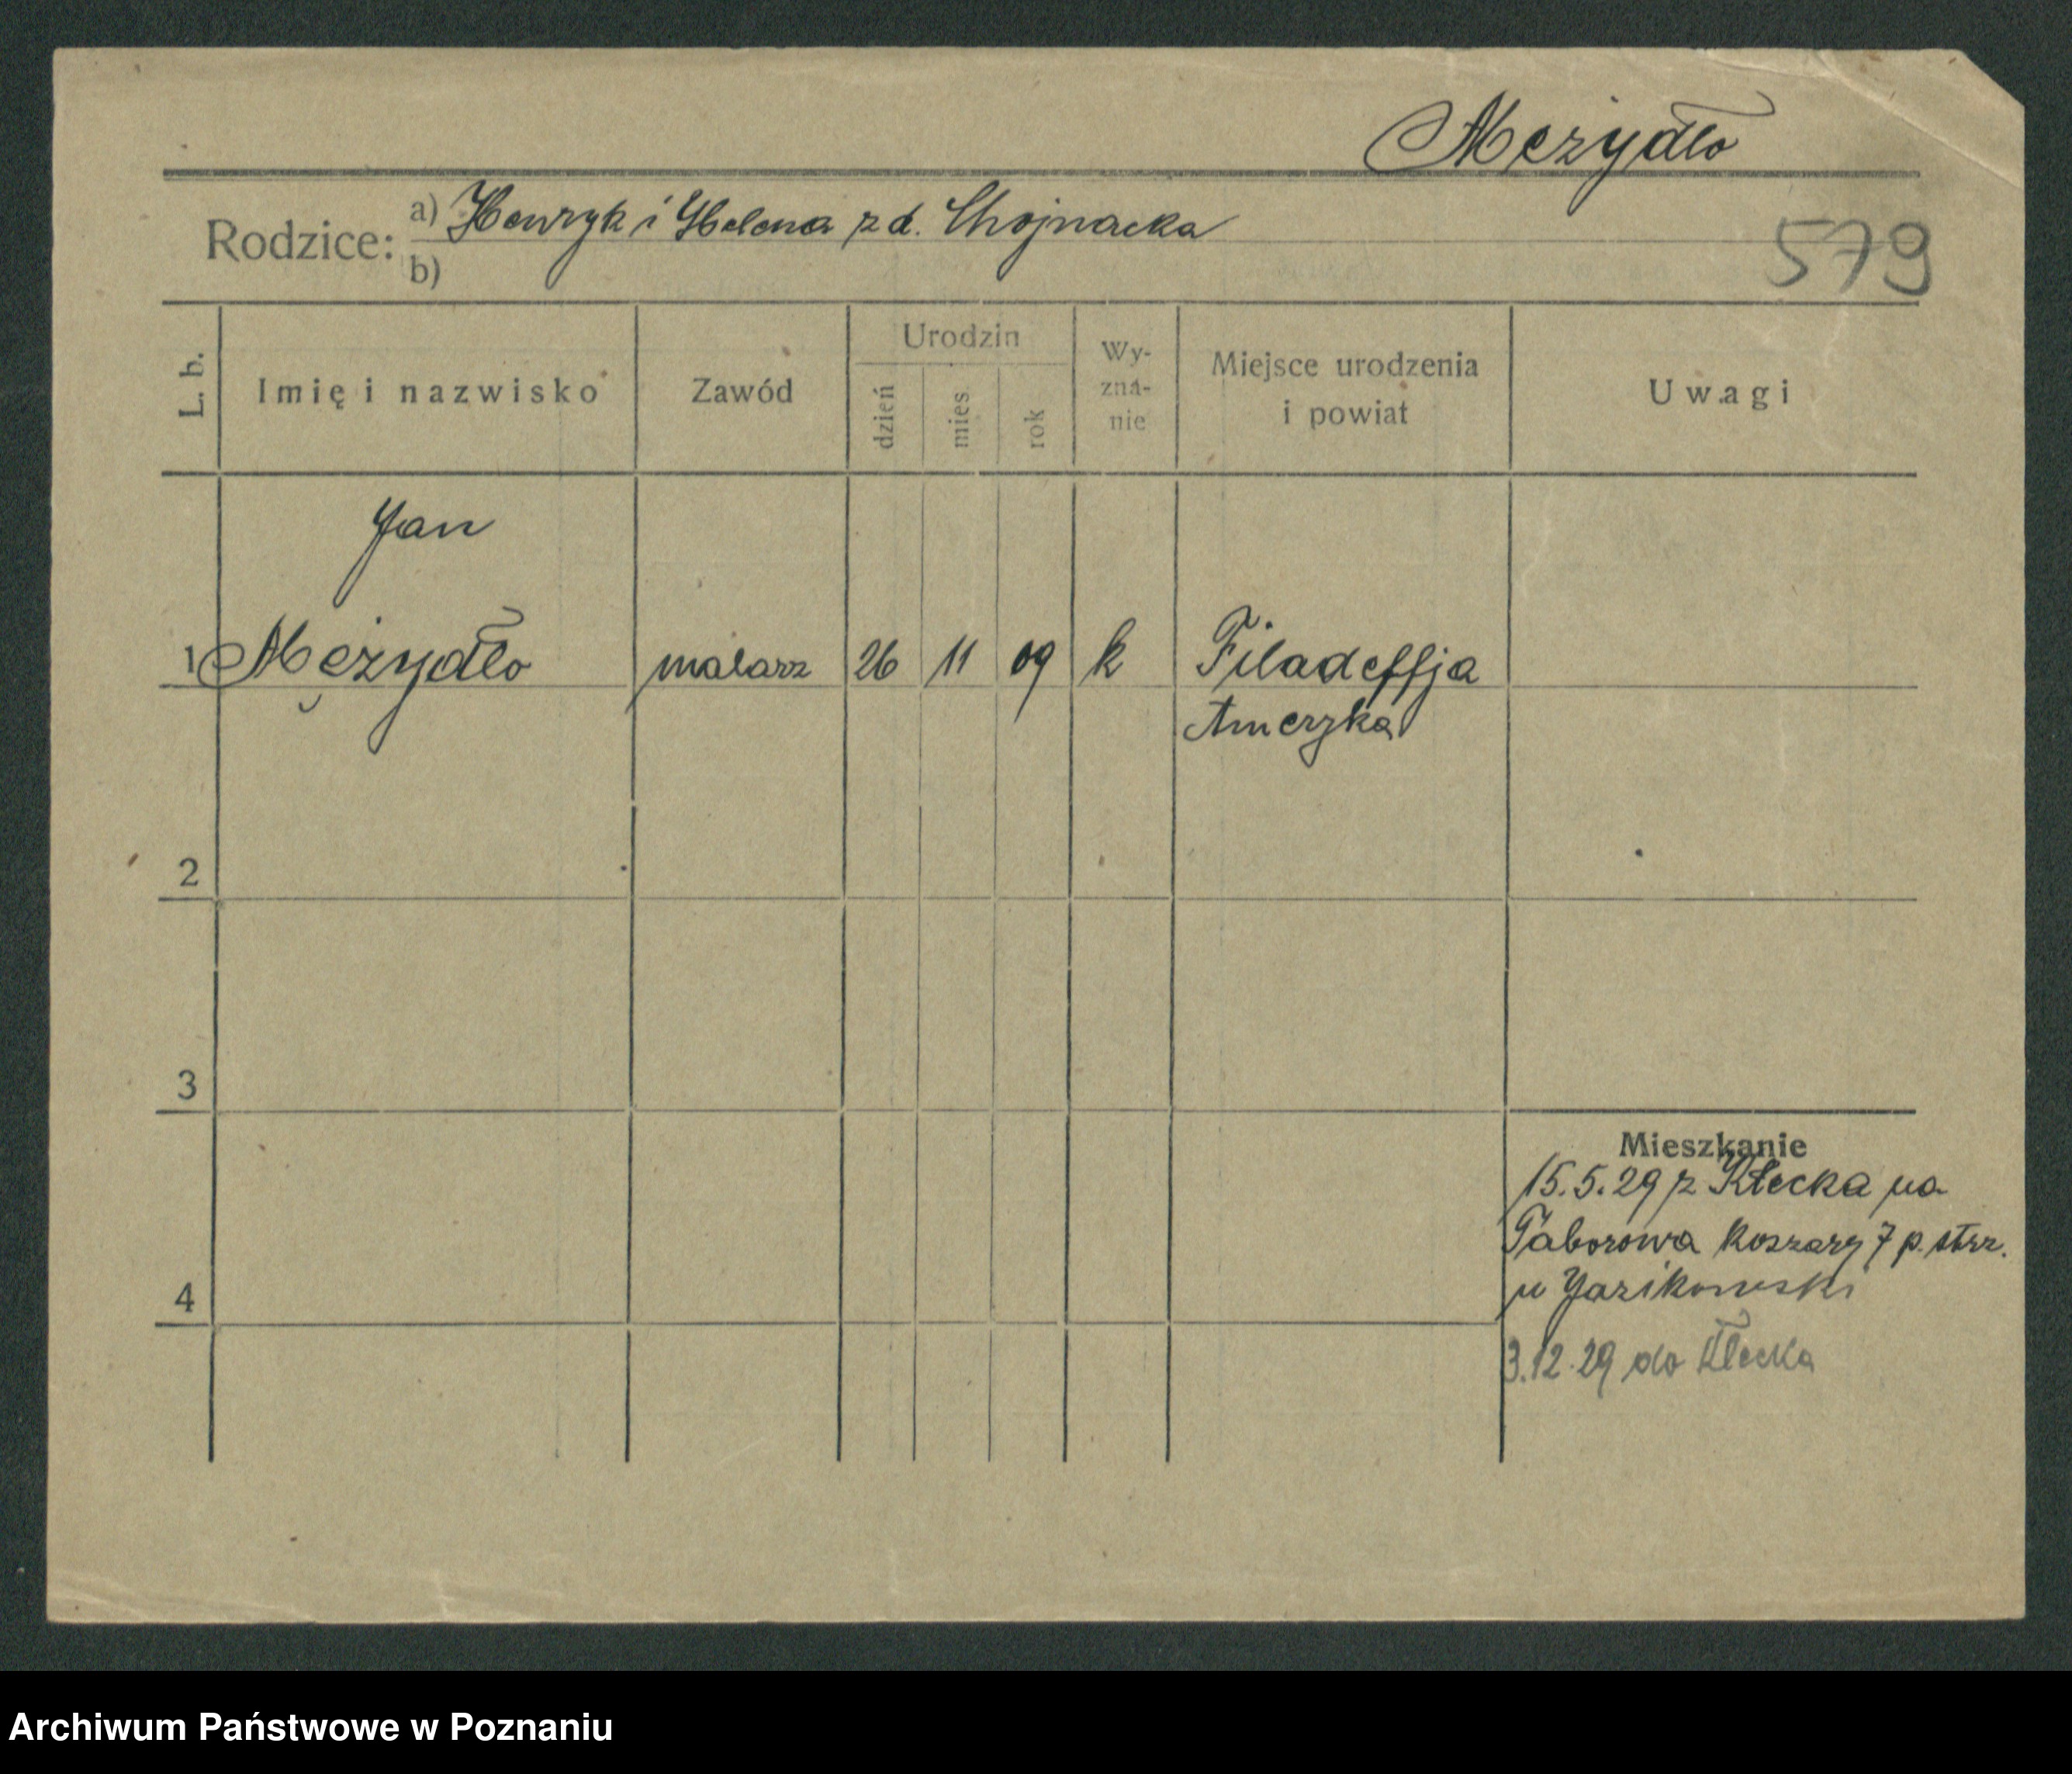 Mężydło
Rodzice: a) Henryk i Helena z d. Chojnacka
b)
579
L. b.
Imię i nazwisko
Zawód
Urodzin
dzień
mies.
rok
Wy-
zna-
nie
Miejsce urodzenia
i powiat
Uwagi
Jan
1 Mężydło malarz 26 11 09 k Filadelfja
Ameryka
2
3
Mieszkanie
15.5.29 z Kłecka na
Taborowa koszary 7 p. strz.
u Jazikowski
4
3.12.29 do Kłecka
Archiwum Państwowe w Poznaniu